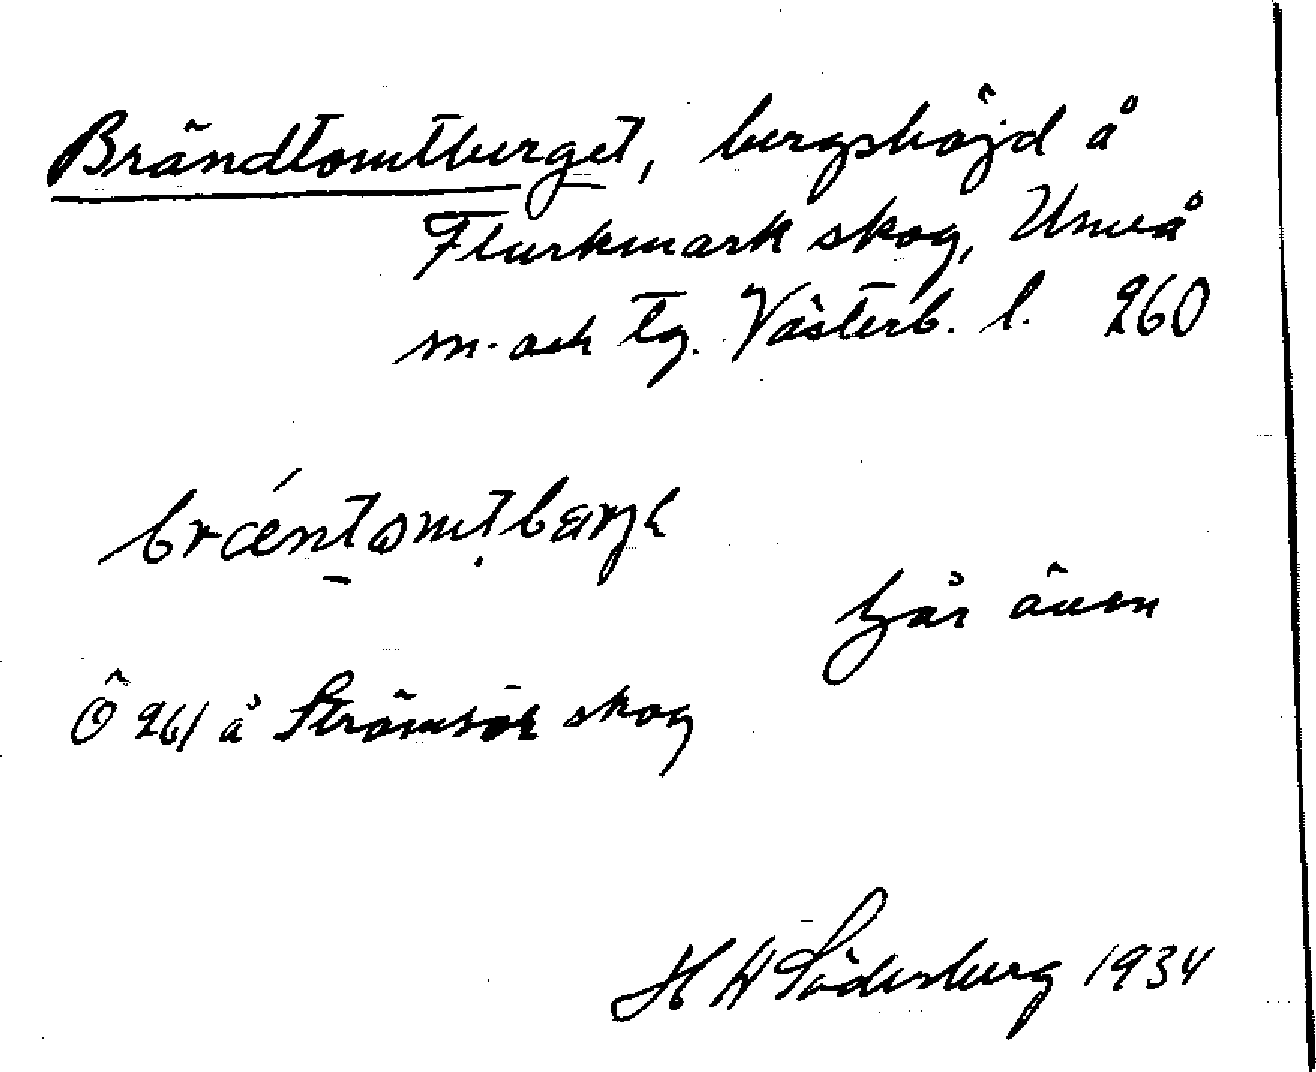 Brändtomtberget, bergshöjd å
Flurkmark skog, Umeå
m. och tg. Västerb. l. 260
bræ´ntomtbærjɛ
här även
Ö 261 å Strömsör skog
H W Söderberg 1934